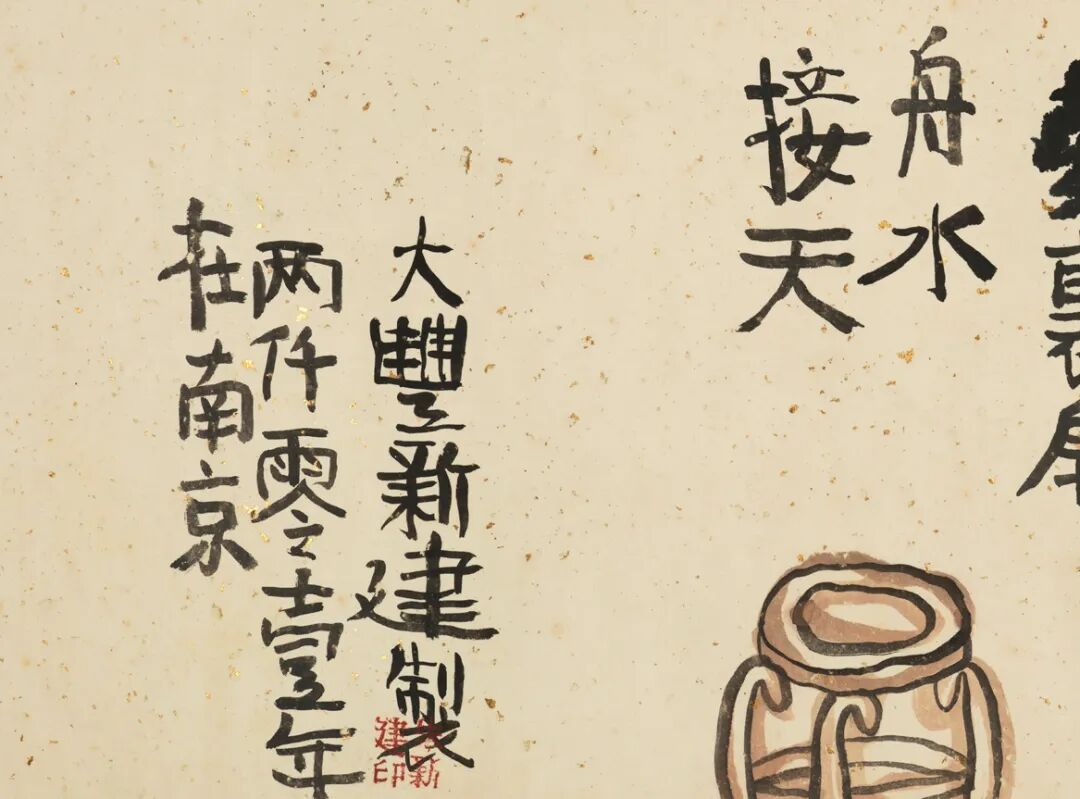 舟水
接天
大豐新建製
两仟零壹年
在南京
朱新
建印